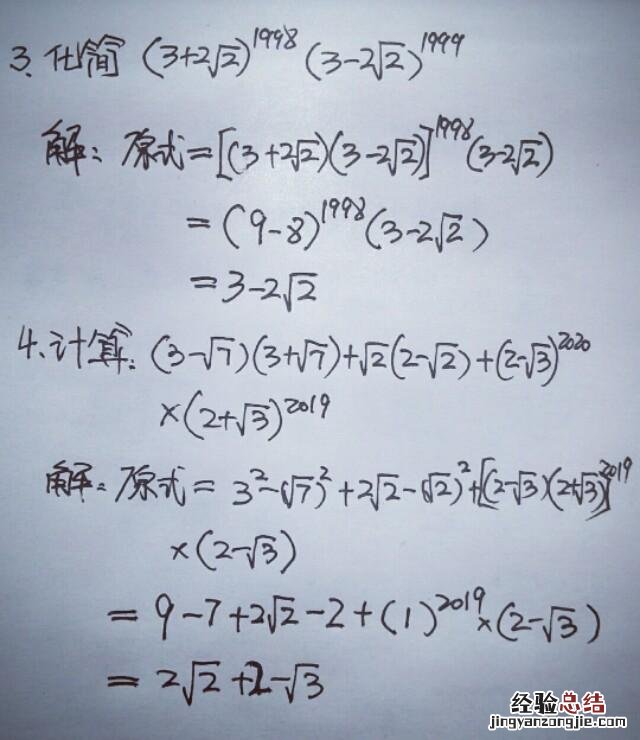 3、化简 (3+2√2)^1998 (3-2√2)^1999
解：原式=[(3+2√2)(3-2√2)]^1998(3-2√2)
=(9-8)^1998(3-2√2)
=3-2√2
4、计算：(3-√7)(3+√7)+√2(2-√2)+(2-√3)^2020
×(2+√3)^2019
解：原式=3^2-(√7)^2+2√2-(√2)^2+[(2-√3)(2+√3)]^2019
×(2-√3)
=9-7+2√2-2+(1)^2019×(2-√3)
=2√2+2-√3
经验总结
jingyanzongjie.com